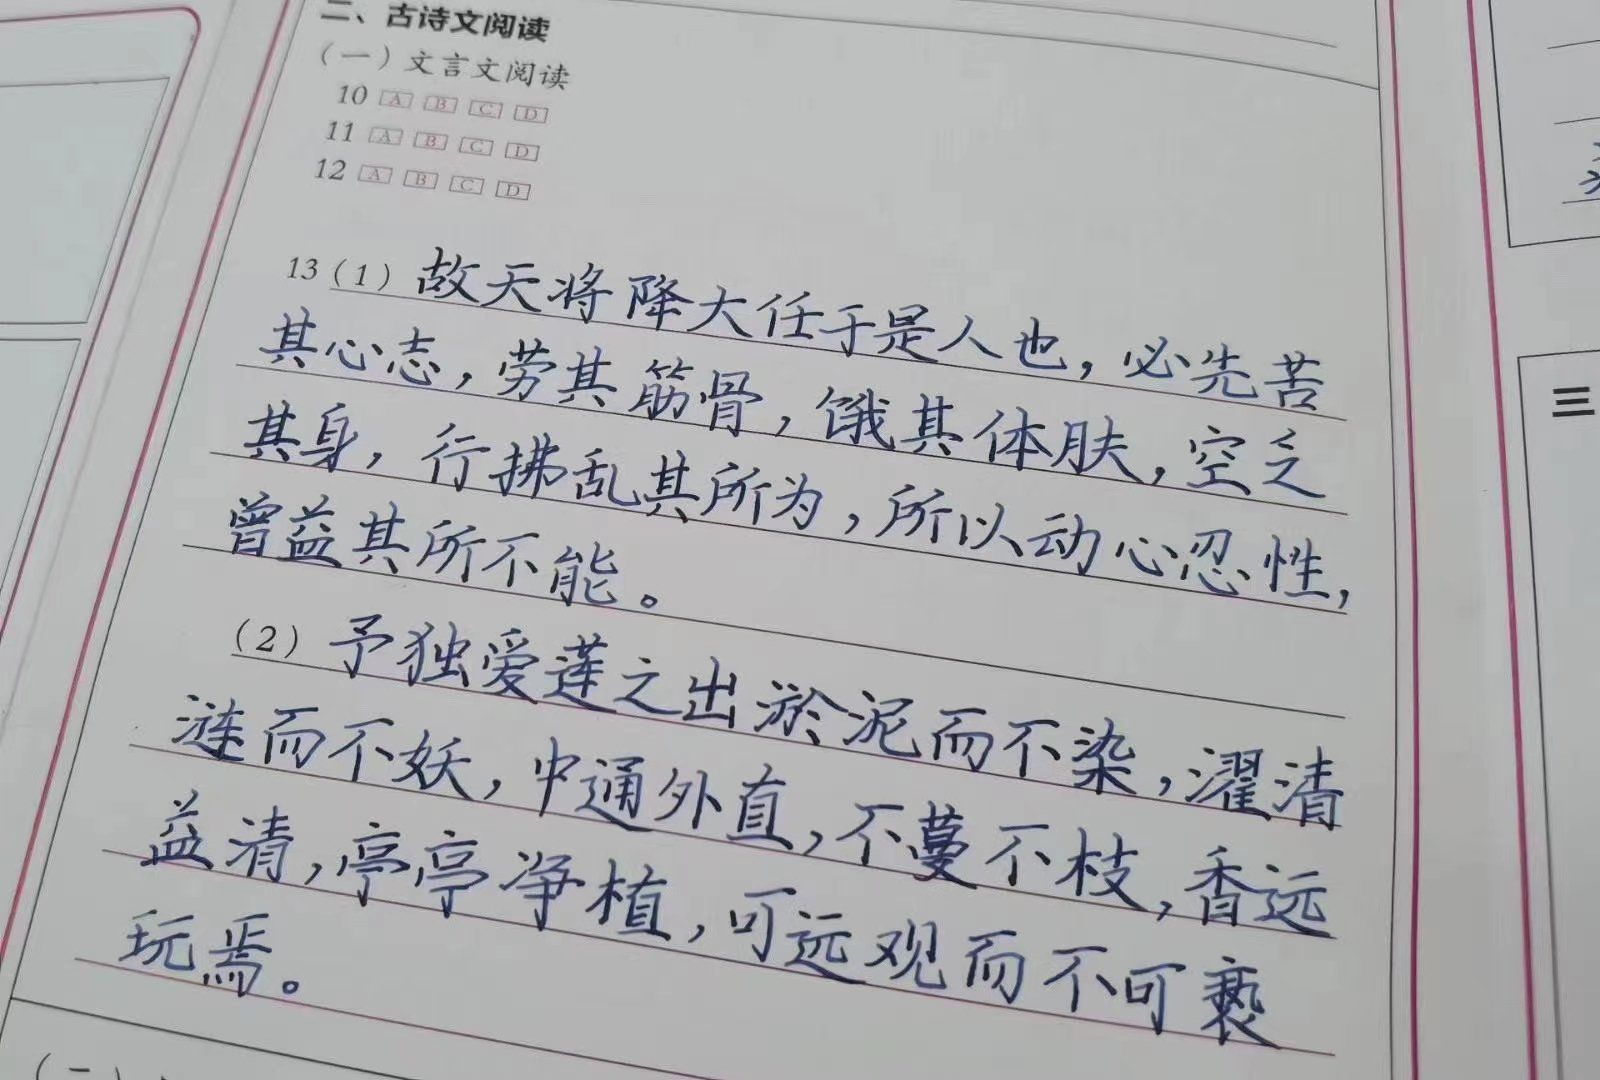 二、古诗文阅读
（一）文言文阅读
10 A B C D
11 A B C D
12 A B C D
13（1）故天将降大任于是人也，必先苦
其心志，劳其筋骨，饿其体肤，空乏
其身，行拂乱其所为，所以动心忍性，
曾益其所不能。
（2）予独爱莲之出淤泥而不染，濯清
涟而不妖，中通外直，不蔓不枝，香远
益清，亭亭净植，可远观而不可亵
玩焉。
三